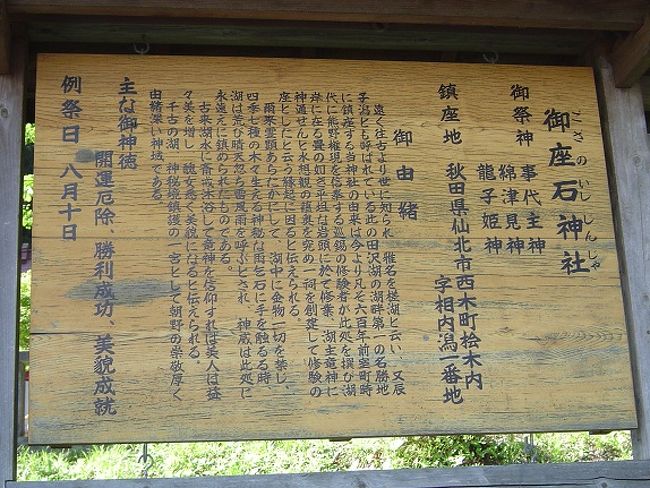 御座石神社
ござのいししんじゃ
御祭神 事代主神
綿津見神
龍子姫神
鎮座地 秋田県仙北市西木町桧木内
字相内潟一番地
御由緒
遠く往古より世に知られ 雅名を槎湖と云い 又辰
子潟とも呼ばれている此の田沢湖の湖群第一の名勝地
に鎮座する当神社の由来は今より凡そ六百年前室町時
代に熊野権現を信奉する巡錫の修験者が此処を撰び湖
岸に在る畳の如き平坦な岩頭に於て修業、湖主竜神に
神通せんと水想観の蘊奥を究め一祠を創建して修験の
座としたと云う縁起に因ると伝えられる。
雨乞霊顕あらたかにして、湖中に金物一切を禁じ、
四季七種の木々生える神秘な雨乞石に手を触るる時、
湖は荒び晴天忽ち雷震雨を呼ぶとされ 神威は此処に
永遠えに鎮められたものである。
古来湖水に斎戒沐浴して竜神を信仰すれば美人は益
々美を増し 醜女悉く美貌になると伝えられる。
千古の湖、神秘境鎮護の一宮として朝野の崇敬厚く
由緒深い神域である。
主な御神徳
開運厄除、勝利成功、美貌成就
例祭日 八月十日